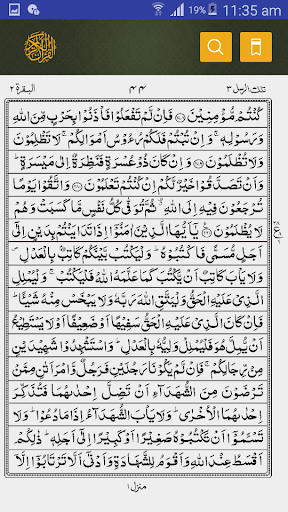 19% 11:35 am
تلك الرسل ٣ ٤٤ البقرة ٢
كُنْتُمْ مُّؤْمِنِيْنَ ﴿٢٧٨﴾ فَاِنْ لَّمْ تَفْعَلُوْا فَاْذَنُوْا بِحَرْبٍ مِّنَ اللّٰهِ
وَرَسُوْلِهٖ ۚ وَاِنْ تُبْتُمْ فَلَكُمْ رُءُوْسُ اَمْوَالِكُمْ ۚ لَا تَظْلِمُوْنَ
وَلَا تُظْلَمُوْنَ ﴿٢٧٩﴾ وَاِنْ كَانَ ذُوْ عُسْرَةٍ فَنَظِرَةٌ اِلٰى مَيْسَرَةٍ ؕ
وَاَنْ تَصَدَّقُوْا خَيْرٌ لَّكُمْ اِنْ كُنْتُمْ تَعْلَمُوْنَ ﴿٢٨٠﴾ وَاتَّقُوْا يَوْمًا
تُرْجَعُوْنَ فِيْهِ اِلَى اللّٰهِ ۗ ثُمَّ تُوَفّٰى كُلُّ نَفْسٍ مَّا كَسَبَتْ وَهُمْ
لَا يُظْلَمُوْنَ ﴿٢٨١﴾ يٰۤاَيُّهَا الَّذِيْنَ اٰمَنُوْۤا اِذَا تَدَايَنْتُمْ بِدَيْنٍ اِلٰۤى
اَجَلٍ مُّسَمًّى فَاكْتُبُوْهُ ؕ وَلْيَكْتُبْ بَّيْنَكُمْ كَاتِبٌۢ بِالْعَدْلِ ۪
وَلَا يَاْبَ كَاتِبٌ اَنْ يَّكْتُبَ كَمَا عَلَّمَهُ اللّٰهُ فَلْيَكْتُبْ ۚ وَلْيُمْلِلِ
الَّذِيْ عَلَيْهِ الْحَقُّ وَلْيَتَّقِ اللّٰهَ رَبَّهٗ وَلَا يَبْخَسْ مِنْهُ شَيْـًٔا ؕ
فَاِنْ كَانَ الَّذِيْ عَلَيْهِ الْحَقُّ سَفِيْهًا اَوْ ضَعِيْفًا اَوْ لَا يَسْتَطِيْعُ
اَنْ يُّمِلَّ هُوَ فَلْيُمْلِلْ وَلِيُّهٗ بِالْعَدْلِ ؕ وَاسْتَشْهِدُوْا شَهِيْدَيْنِ
مِنْ رِّجَالِكُمْ ۚ فَاِنْ لَّمْ يَكُوْنَا رَجُلَيْنِ فَرَجُلٌ وَّامْرَاَتٰنِ مِمَّنْ
تَرْضَوْنَ مِنَ الشُّهَدَآءِ اَنْ تَضِلَّ اِحْدٰىهُمَا فَتُذَكِّرَ
اِحْدٰىهُمَا الْاُخْرٰى ؕ وَلَا يَاْبَ الشُّهَدَآءُ اِذَا مَا دُعُوْا ؕ وَلَا
تَسْـَٔمُوْۤا اَنْ تَكْتُبُوْهُ صَغِيْرًا اَوْ كَبِيْرًا اِلٰۤى اَجَلِهٖ ؕ ذٰلِكُمْ
اَقْسَطُ عِنْدَ اللّٰهِ وَاَقْوَمُ لِلشَّهَادَةِ وَاَدْنٰۤى اَلَّا تَرْتَابُوْۤا اِلَّاۤ
منزل ١